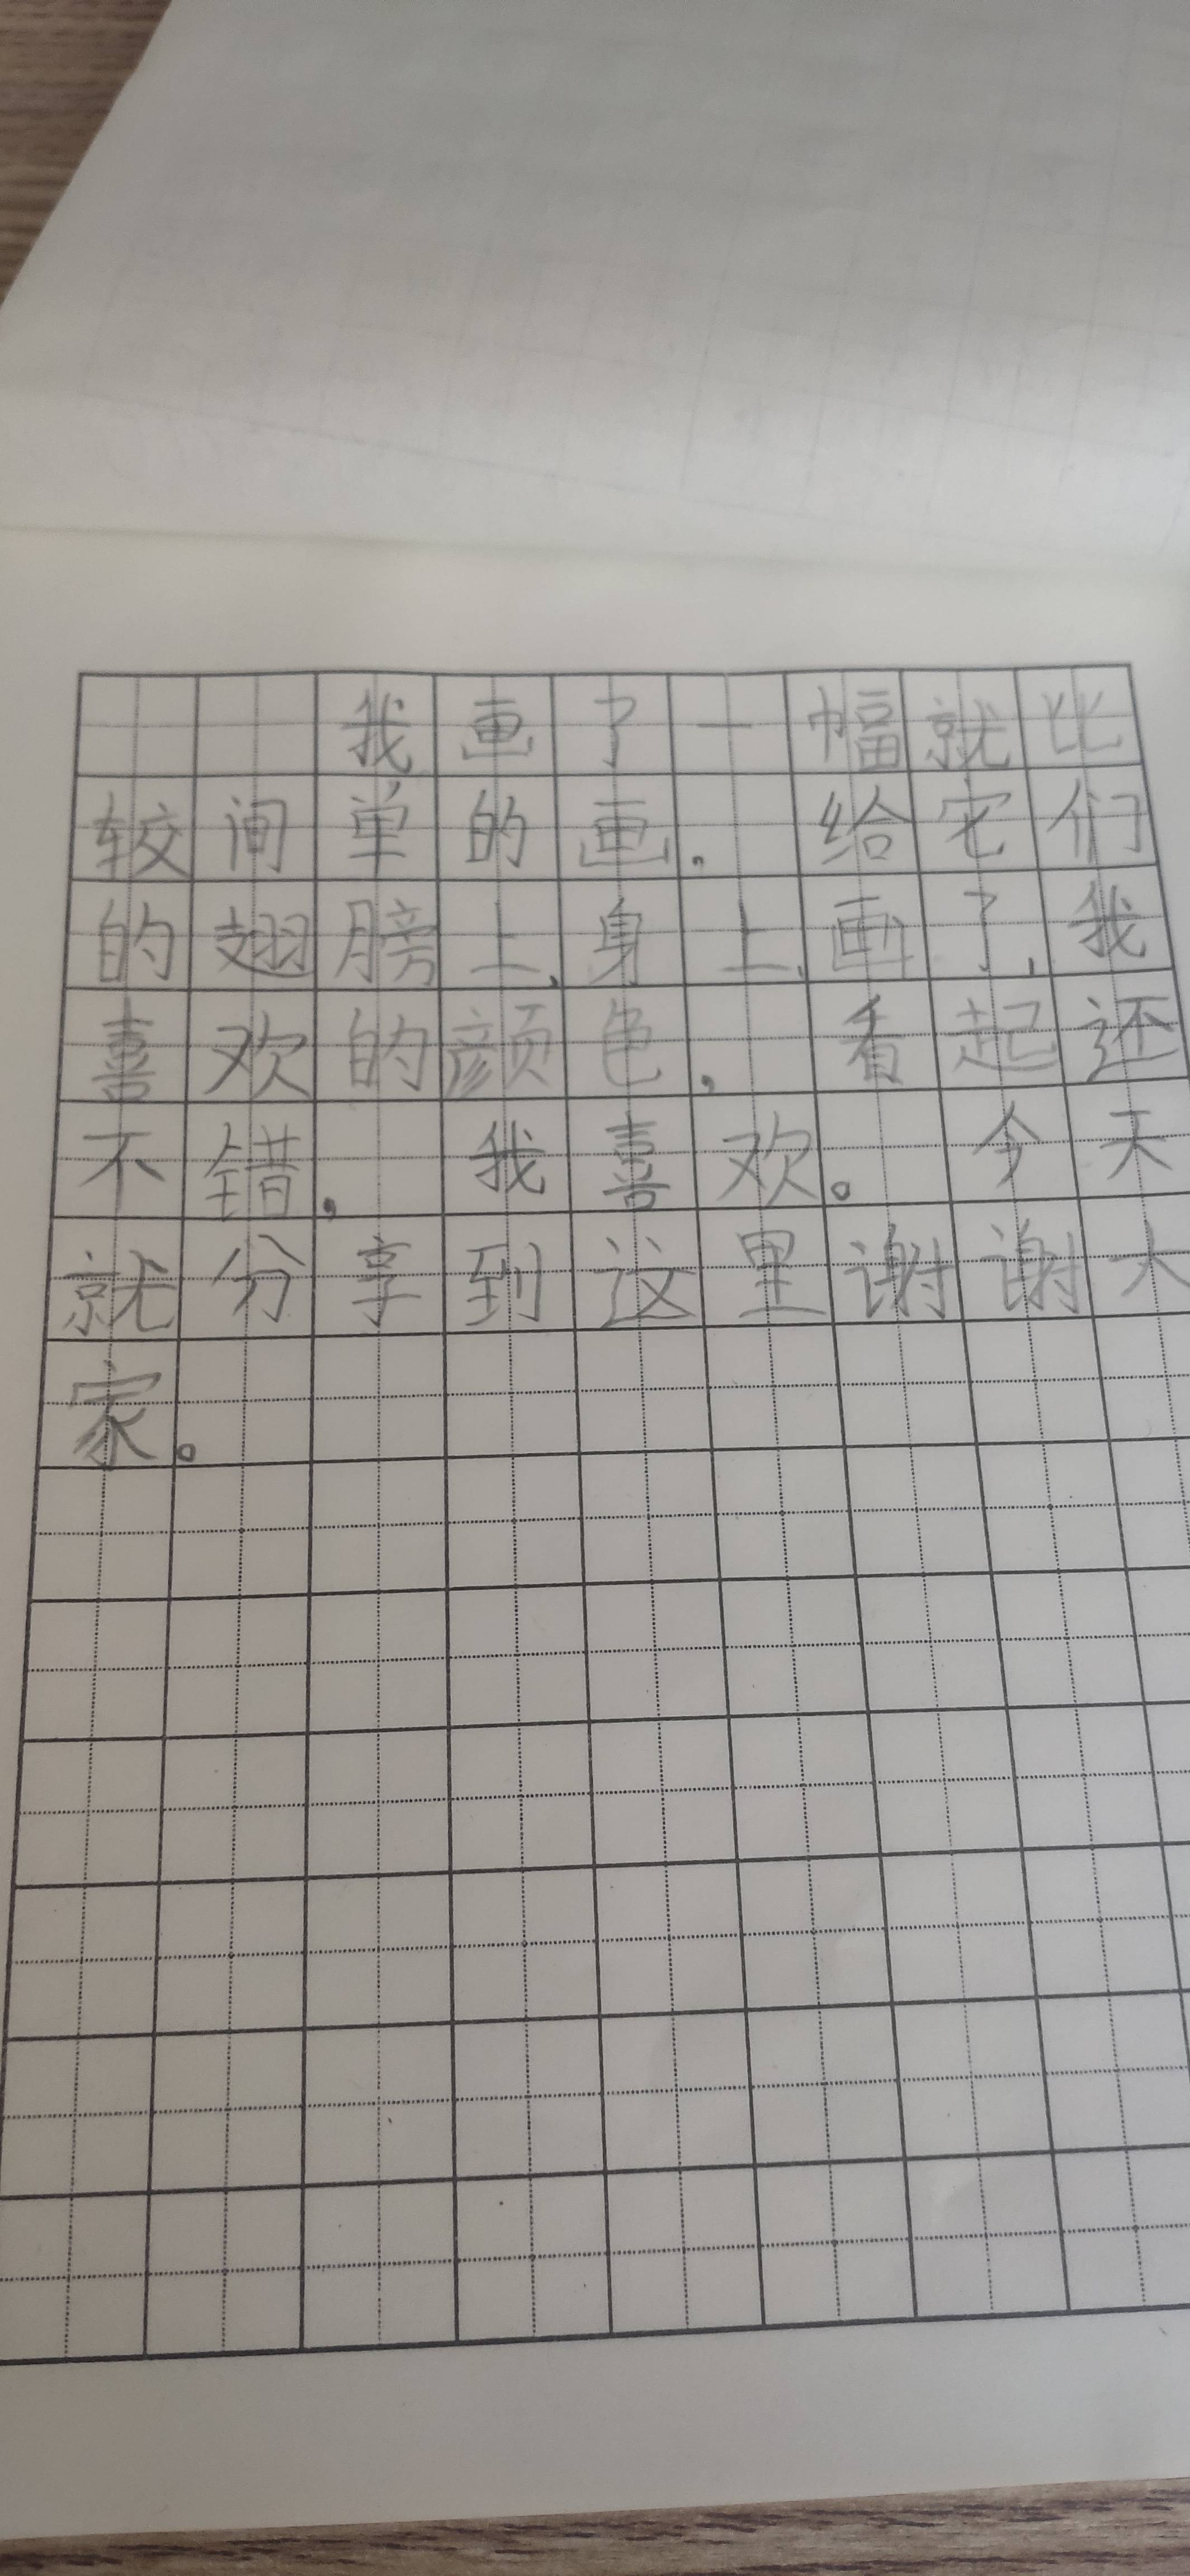 我画了一幅就比
较间单的画，给它们
的翅膀上，身上，画了，我
喜欢的颜色，看起还
不错，我喜欢。今天
就分享到这里谢谢大
家。